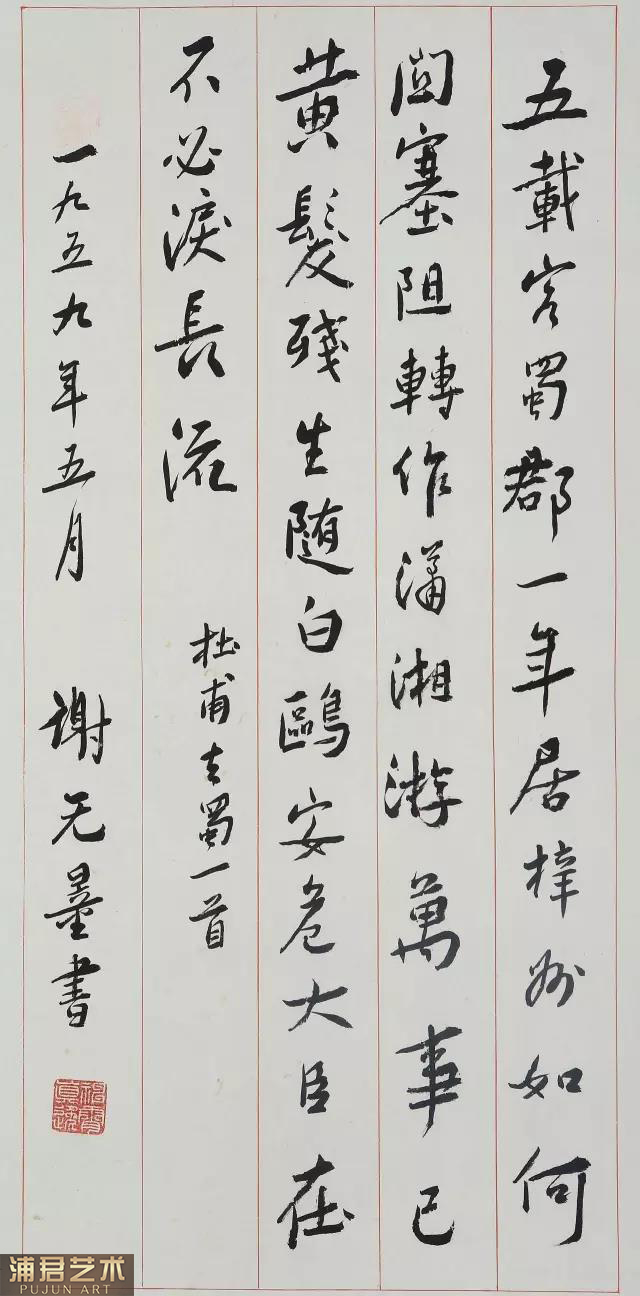 五載客蜀郡一年居梓州如何
關塞阻轉作瀟湘游萬事已
黄髮殘生随白鷗安危大臣在
不必淚長流 杜甫去蜀一首
一九五九年五月 谢无量書
浦君艺术
PUJUN ART